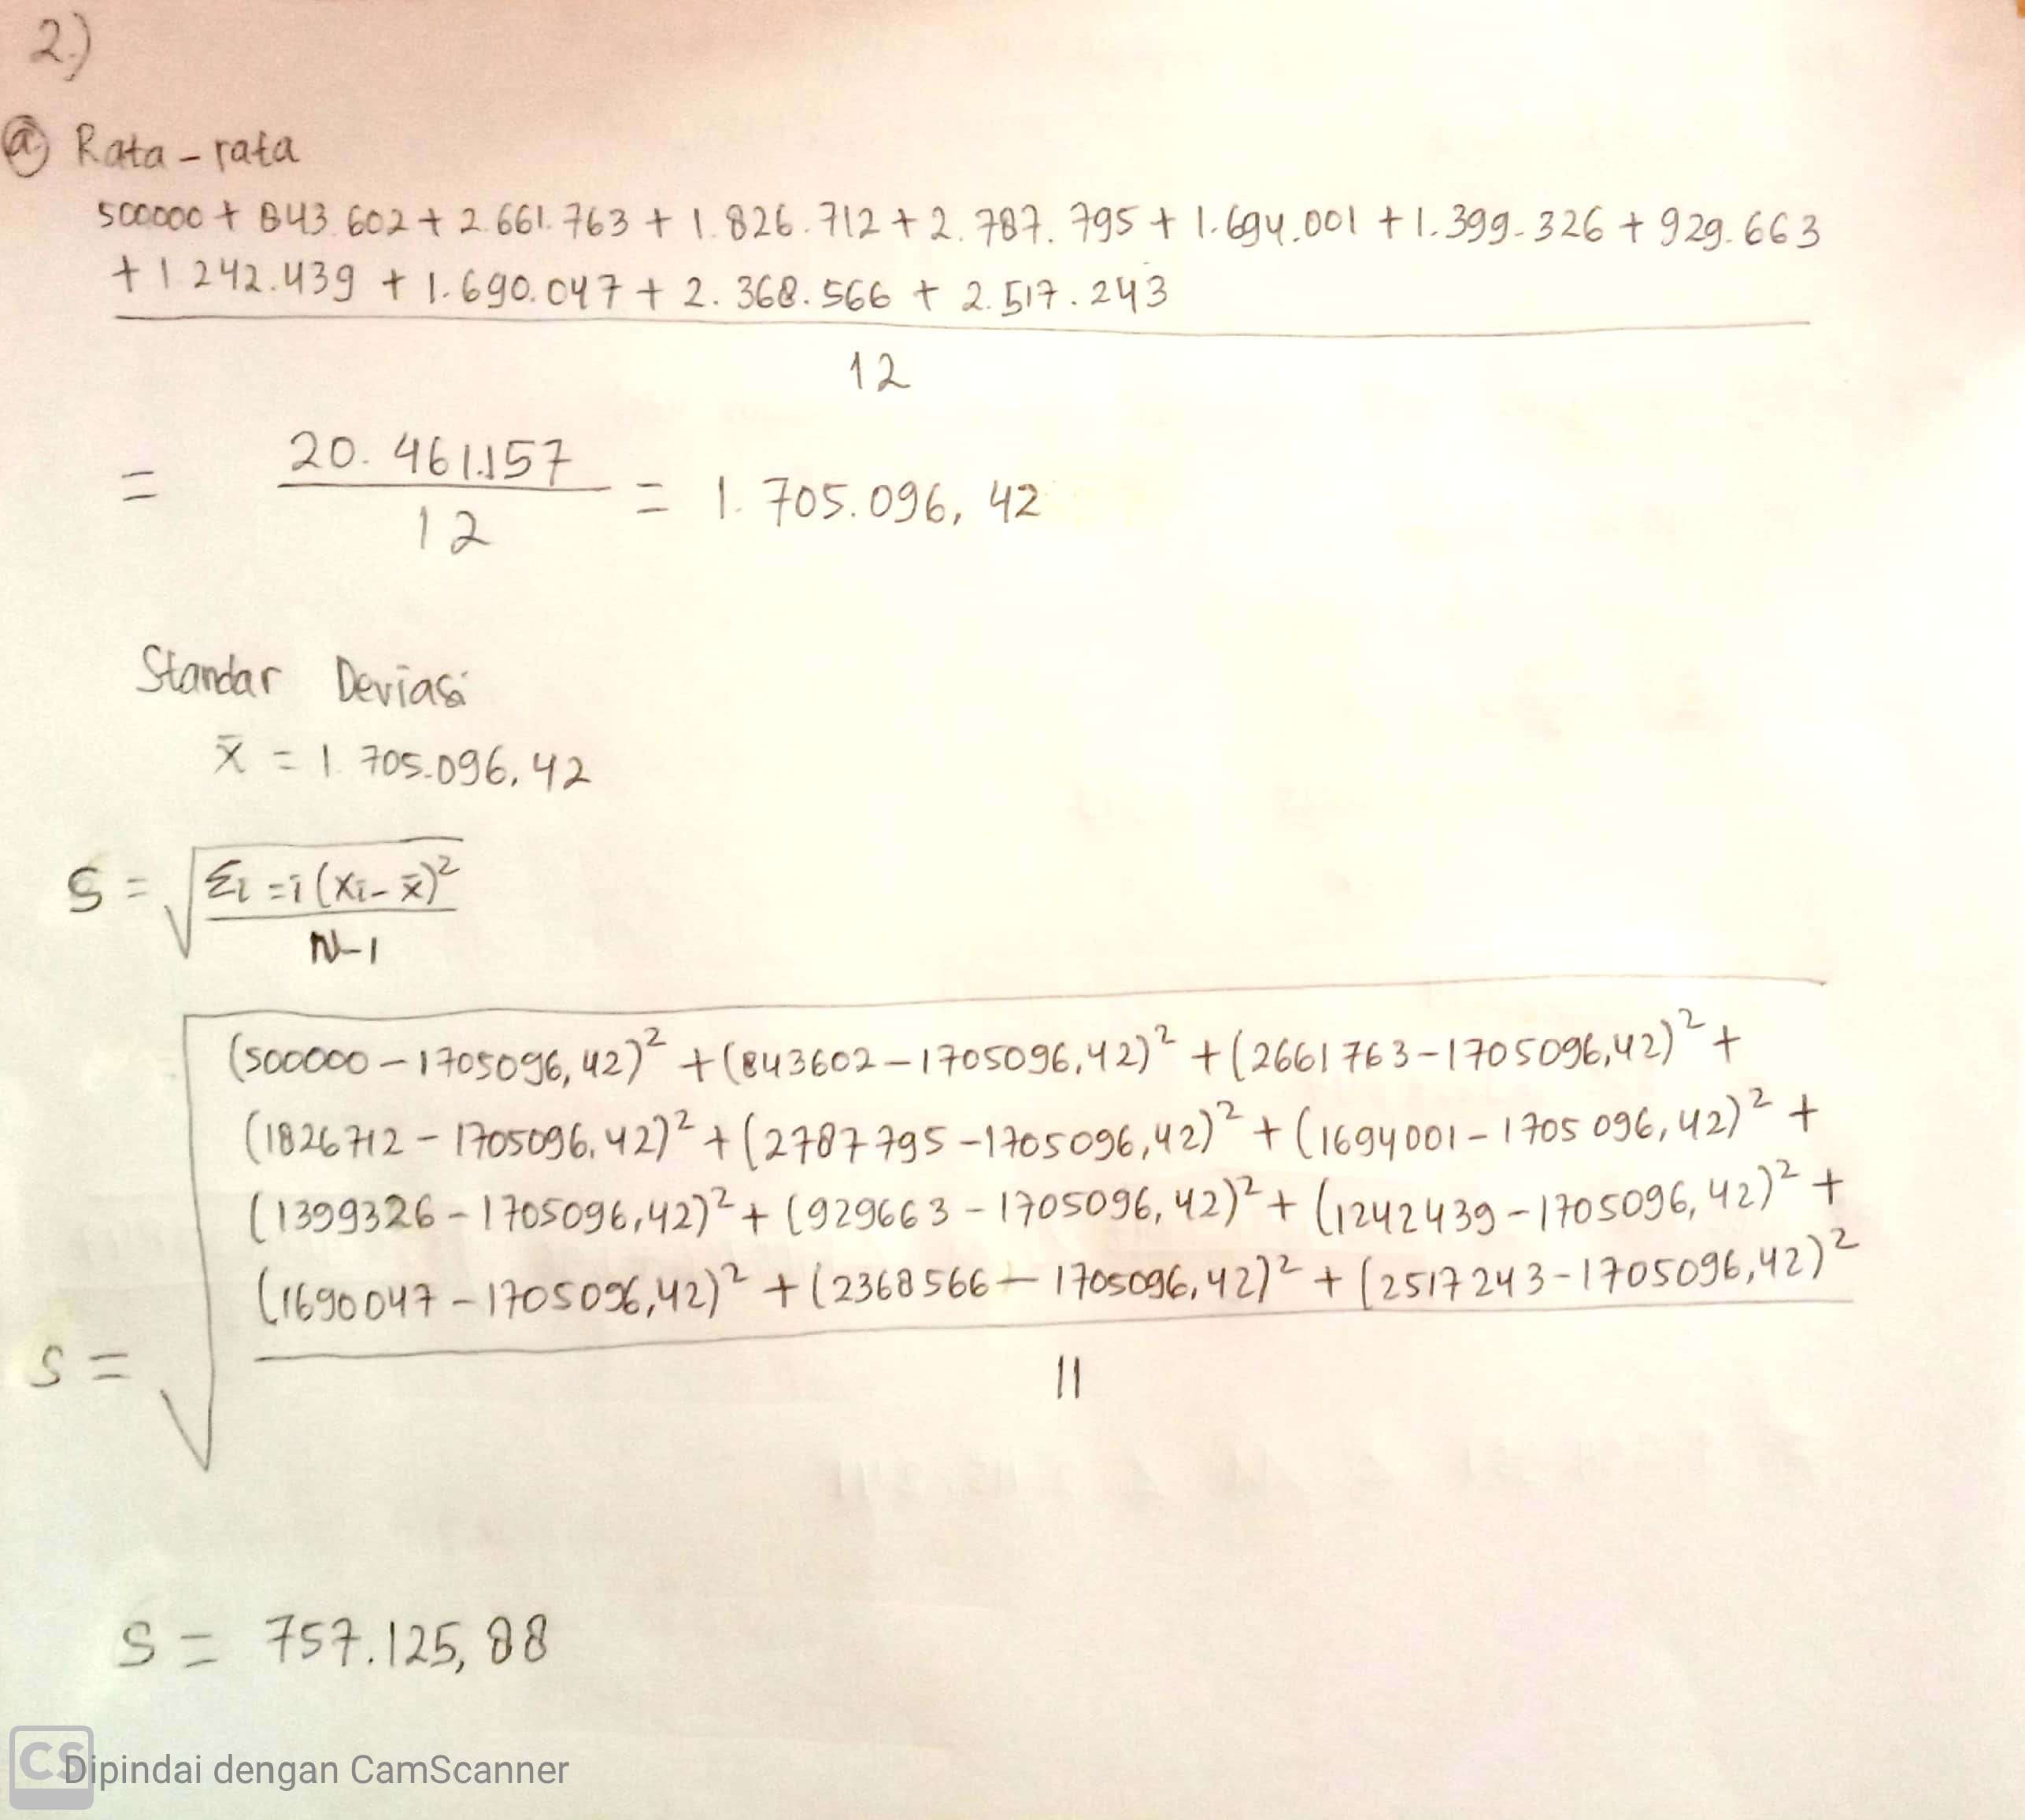 2.)
a. Rata-rata
500000 + 843.602 + 2.661.763 + 1.826.712 + 2.787.795 + 1.694.001 + 1.399.326 + 929.663
+ 1 242.439 + 1.690.047 + 2.368.566 + 2.517.243
12
= 20.461.157 / 12 = 1.705.096,42
Standar Deviasi
x̄ = 1.705.096,42
S = √ Σi=i (xi - x̄)²
N-1
(500000 - 1705096,42)² + (843602 - 1705096,42)² + (2661763 - 1705096,42)² +
(1826712 - 1705096,42)² + (2787795 - 1705096,42)² + (1694001 - 1705096,42)² +
(1399326 - 1705096,42)² + (929663 - 1705096,42)² + (1242439 - 1705096,42)² +
(1690047 - 1705096,42)² + (2368566 - 1705096,42)² + (2517243 - 1705096,42)²
S = √
11
S = 757.125,88
CS Dipindai dengan CamScanner